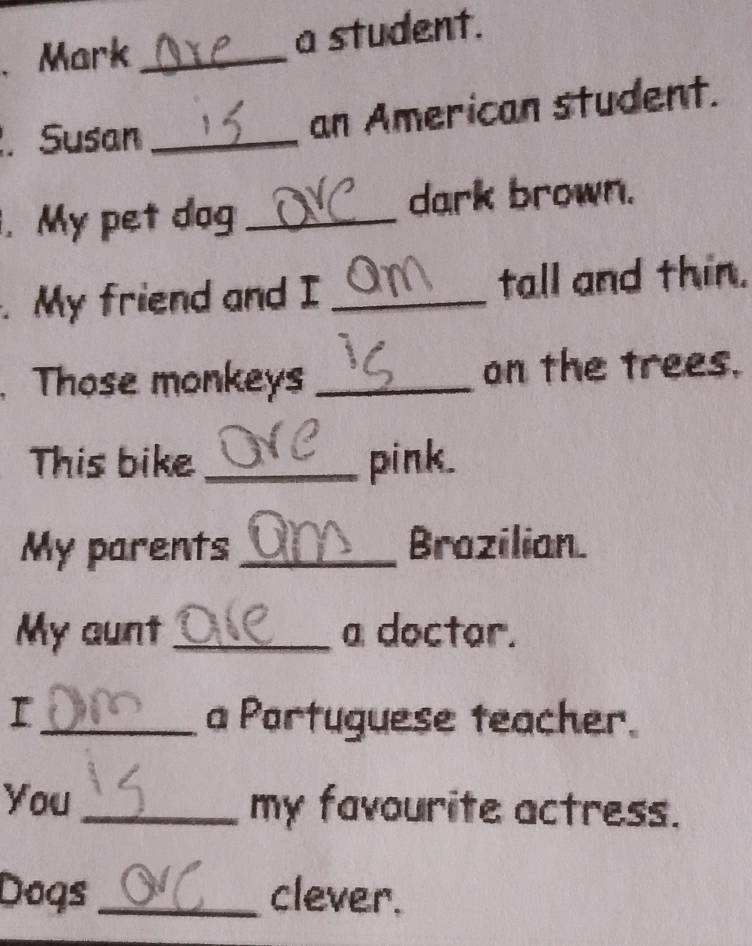 . Mark are a student.
. Susan is an American student.
. My pet dog are dark brown.
. My friend and I am tall and thin.
. Those monkeys is on the trees.
This bike are pink.
My parents am Brazilian.
My aunt are a doctor.
I am a Portuguese teacher.
You is my favourite actress.
Dogs are clever.